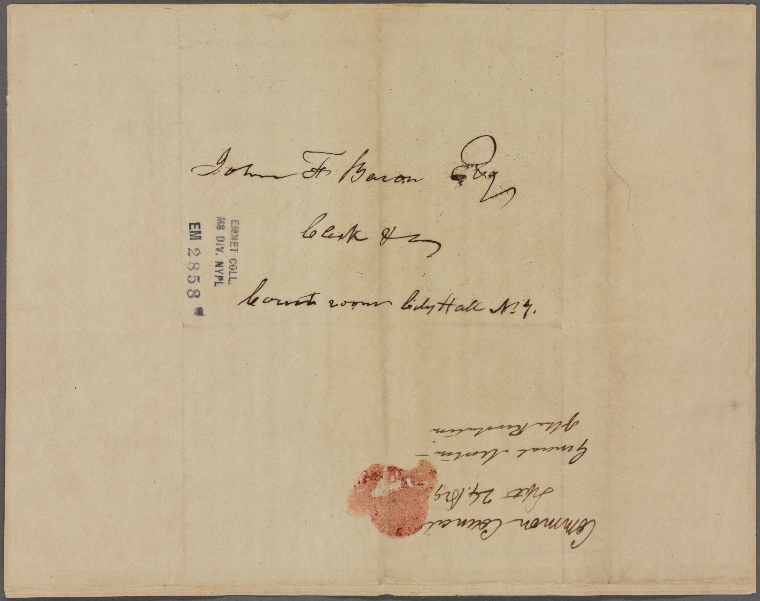 John F Bacon Esq
Clerk &c
Court room City Hall N.Y.
EMMET COLL.
MS DIV. NYPL
EM 2858
Common Council
Sept 24, 1829
General
of the Revolution